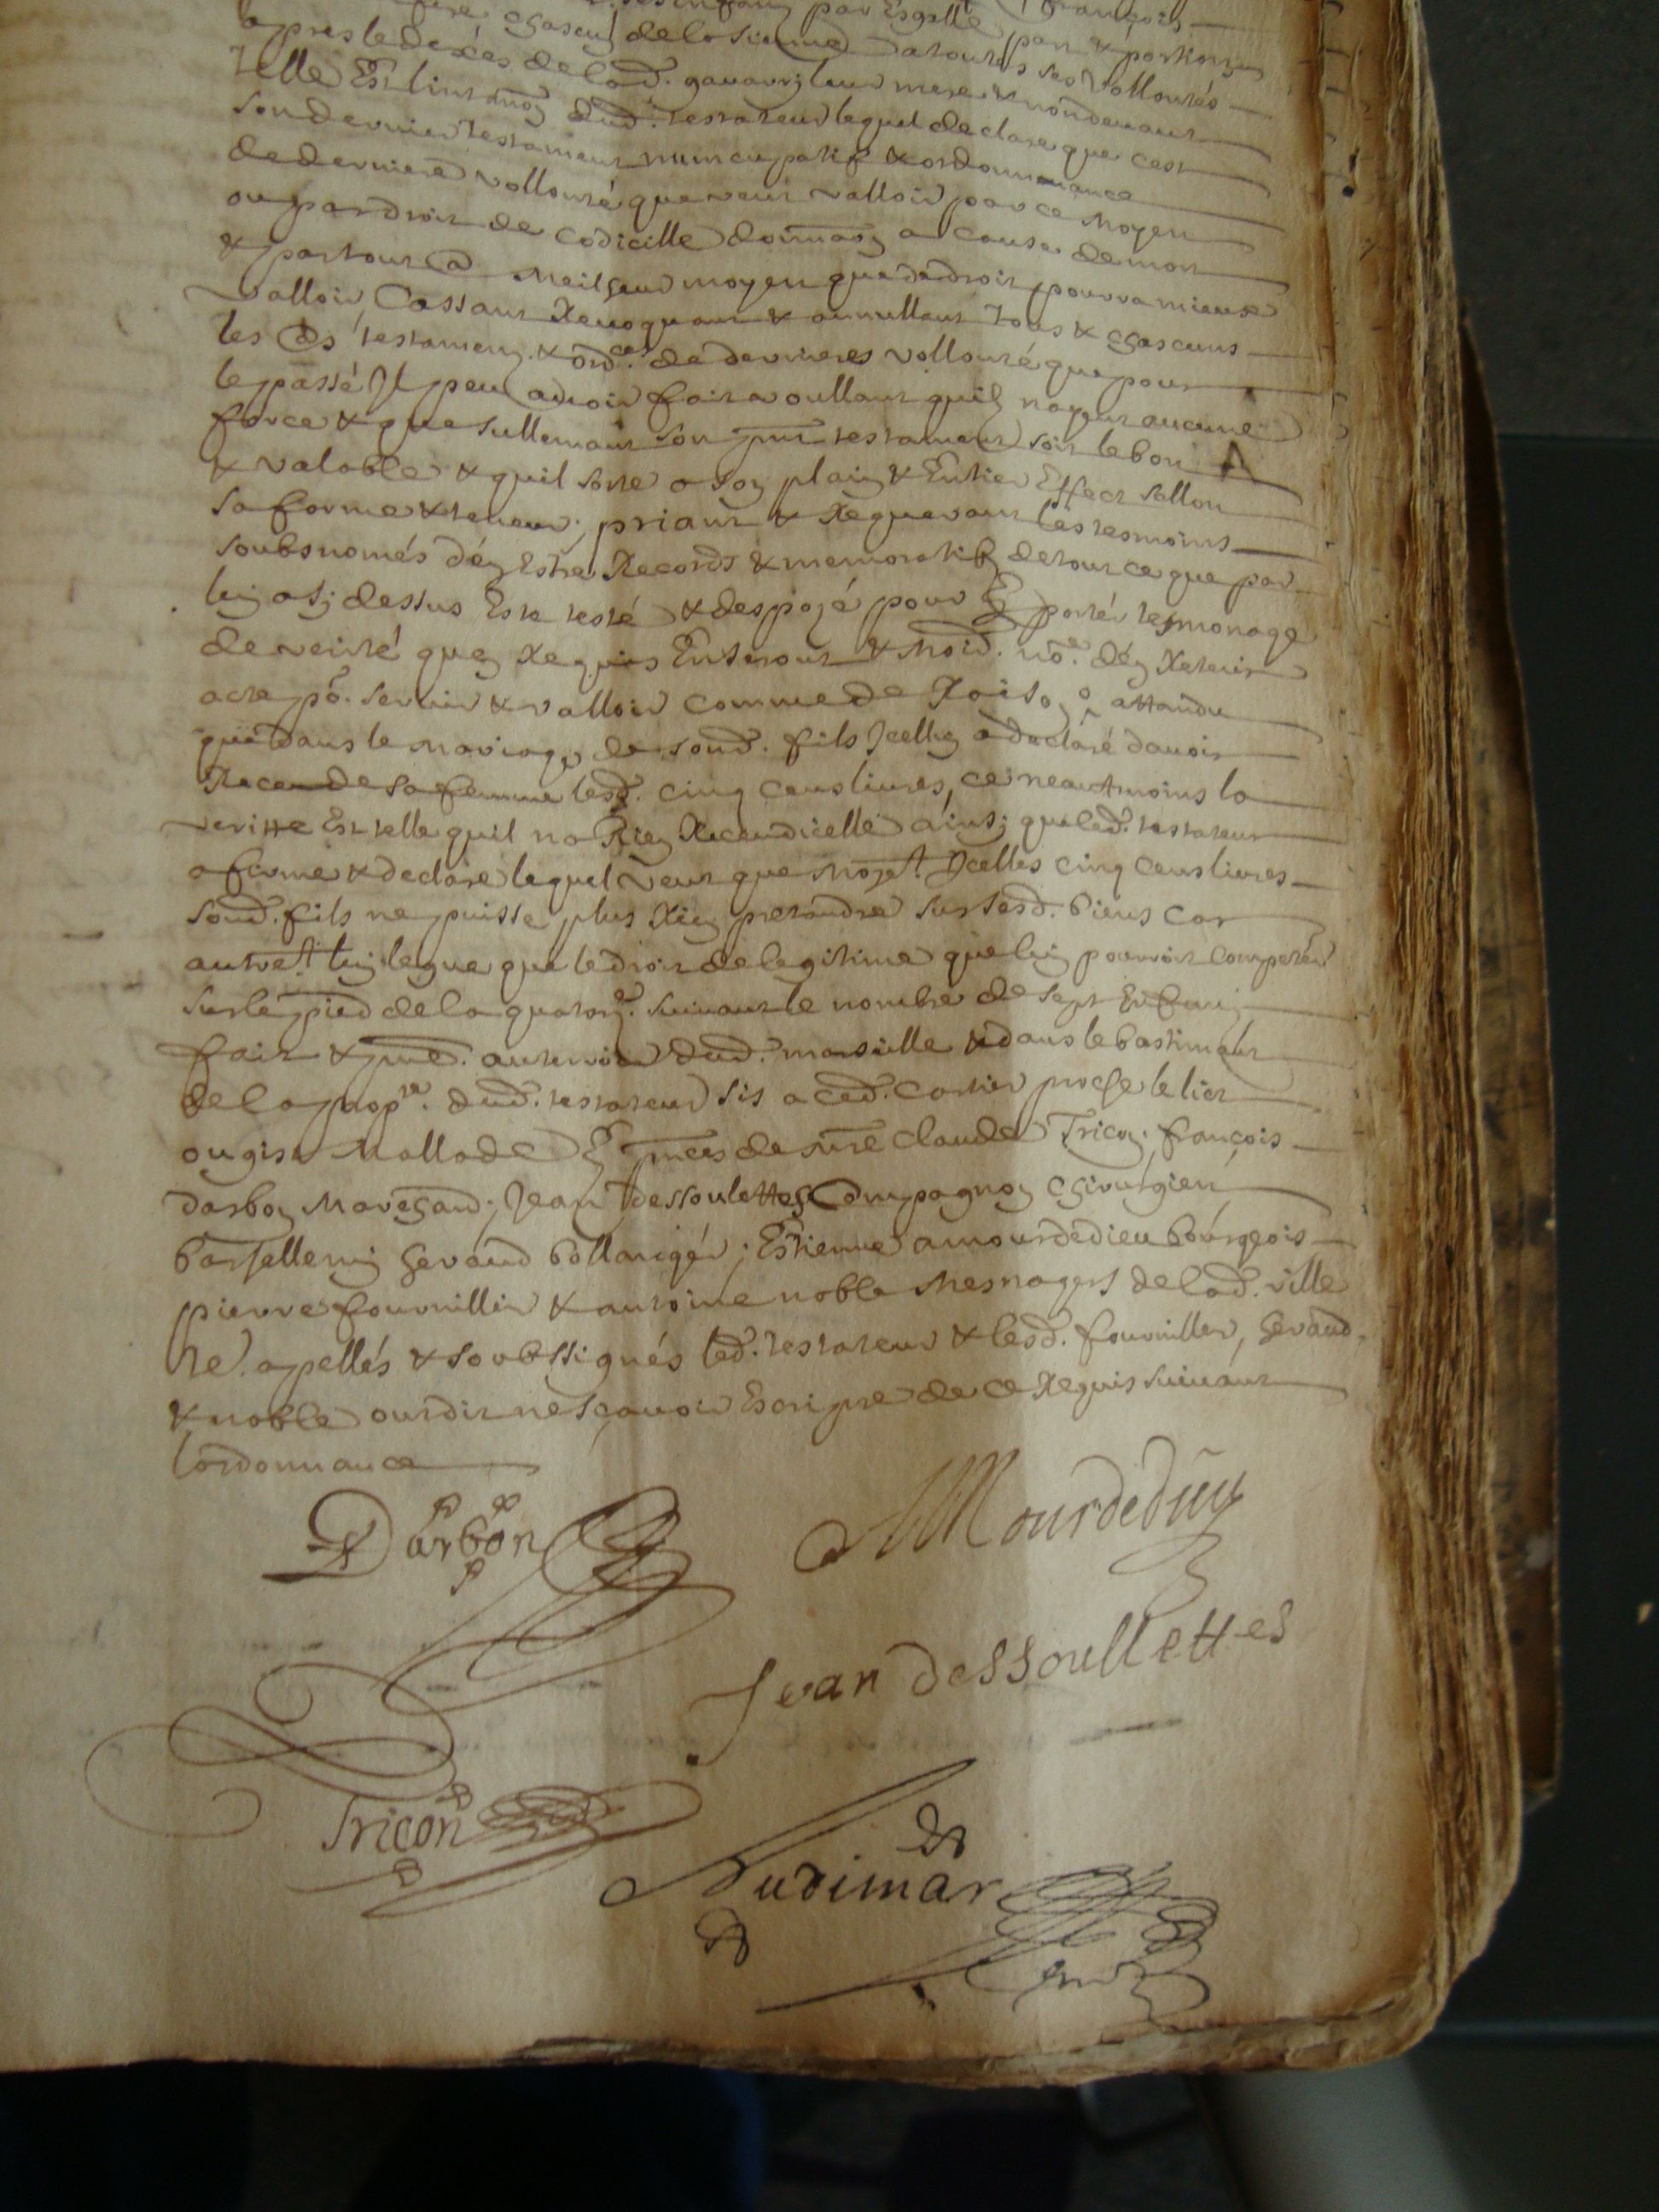 chascun de la sienne a toutes ses vollontés
apres le decés de lad. gavarry leur mere & non devant
Telle Est lintantion dud. testateur lequel declare que cest
son dernier testament nuncupatif & ordonnance
de derniere vollonté que veut valloir par ce moyen
ou par droit de codicille donnaõn a cause de mort
& par tout @ meilheur moyen que de droit pourra mieux
valloir, Cassant Revoquant & annullant Tous & chascuns
les @es testamens & ordces. de derniere vollonté que pour
le passé Il peut avoir fait voullant quils nayent aucune
force & que sullemant son pnt testament soit le bon
& valable & quil sorte a son plain & Entier Effect sellon
sa forme & teneur, priant & Requerant les tesmoins
soubsnomés dén Estre Records & memoratifs de tout ce que par
luy a sy dessus Este testé & despozé pour En porter tesmonage
de verité quen Requis Enseront & Moid. noe. dén Retenir
acte po. servir & valloir comme de Raison attandu
que dans le mariage de soud. fils Icelluy a declaré davoir
Receu de sa femme lesd. cinq cens livres, ce neantmoins la
veritte Est telle quil na Rien Receu dicelle ainsy que led. testateur
afirme & declare lequel veut que moyet. Icelles cinq cens livres
soud. fils ne puisse plus Rien pretandre sur sesd. biens car
autret. luy legue que le droit de legitime que luy pouvoit competer
sur le pied de la quatorze. suivant le nombre de sept Enfans
fait & pue. au terroir dud. marseille & dans le bastimant
de la propte. dud. testateur sis a ced. cartier proche le lict
ou gist Mallade En pnces de mre claude Tricon, françois
darbon Marchand, Jean dessoulettes Compagnon chirurgien
barthellemy geraud bollangér, Estienne amourdedieu bourgeois
pierre fournillier & antoine noble mesnagers de lad. ville
Te. apellés & soubssignés led. testateur & lesd. fournillier, geraud
& noble ont dit ne sçavoir Escripre de ce Requis suivant
lordonnance
Darbon AMourdedieu
Jean dessoullettes
Tricon
Audimar